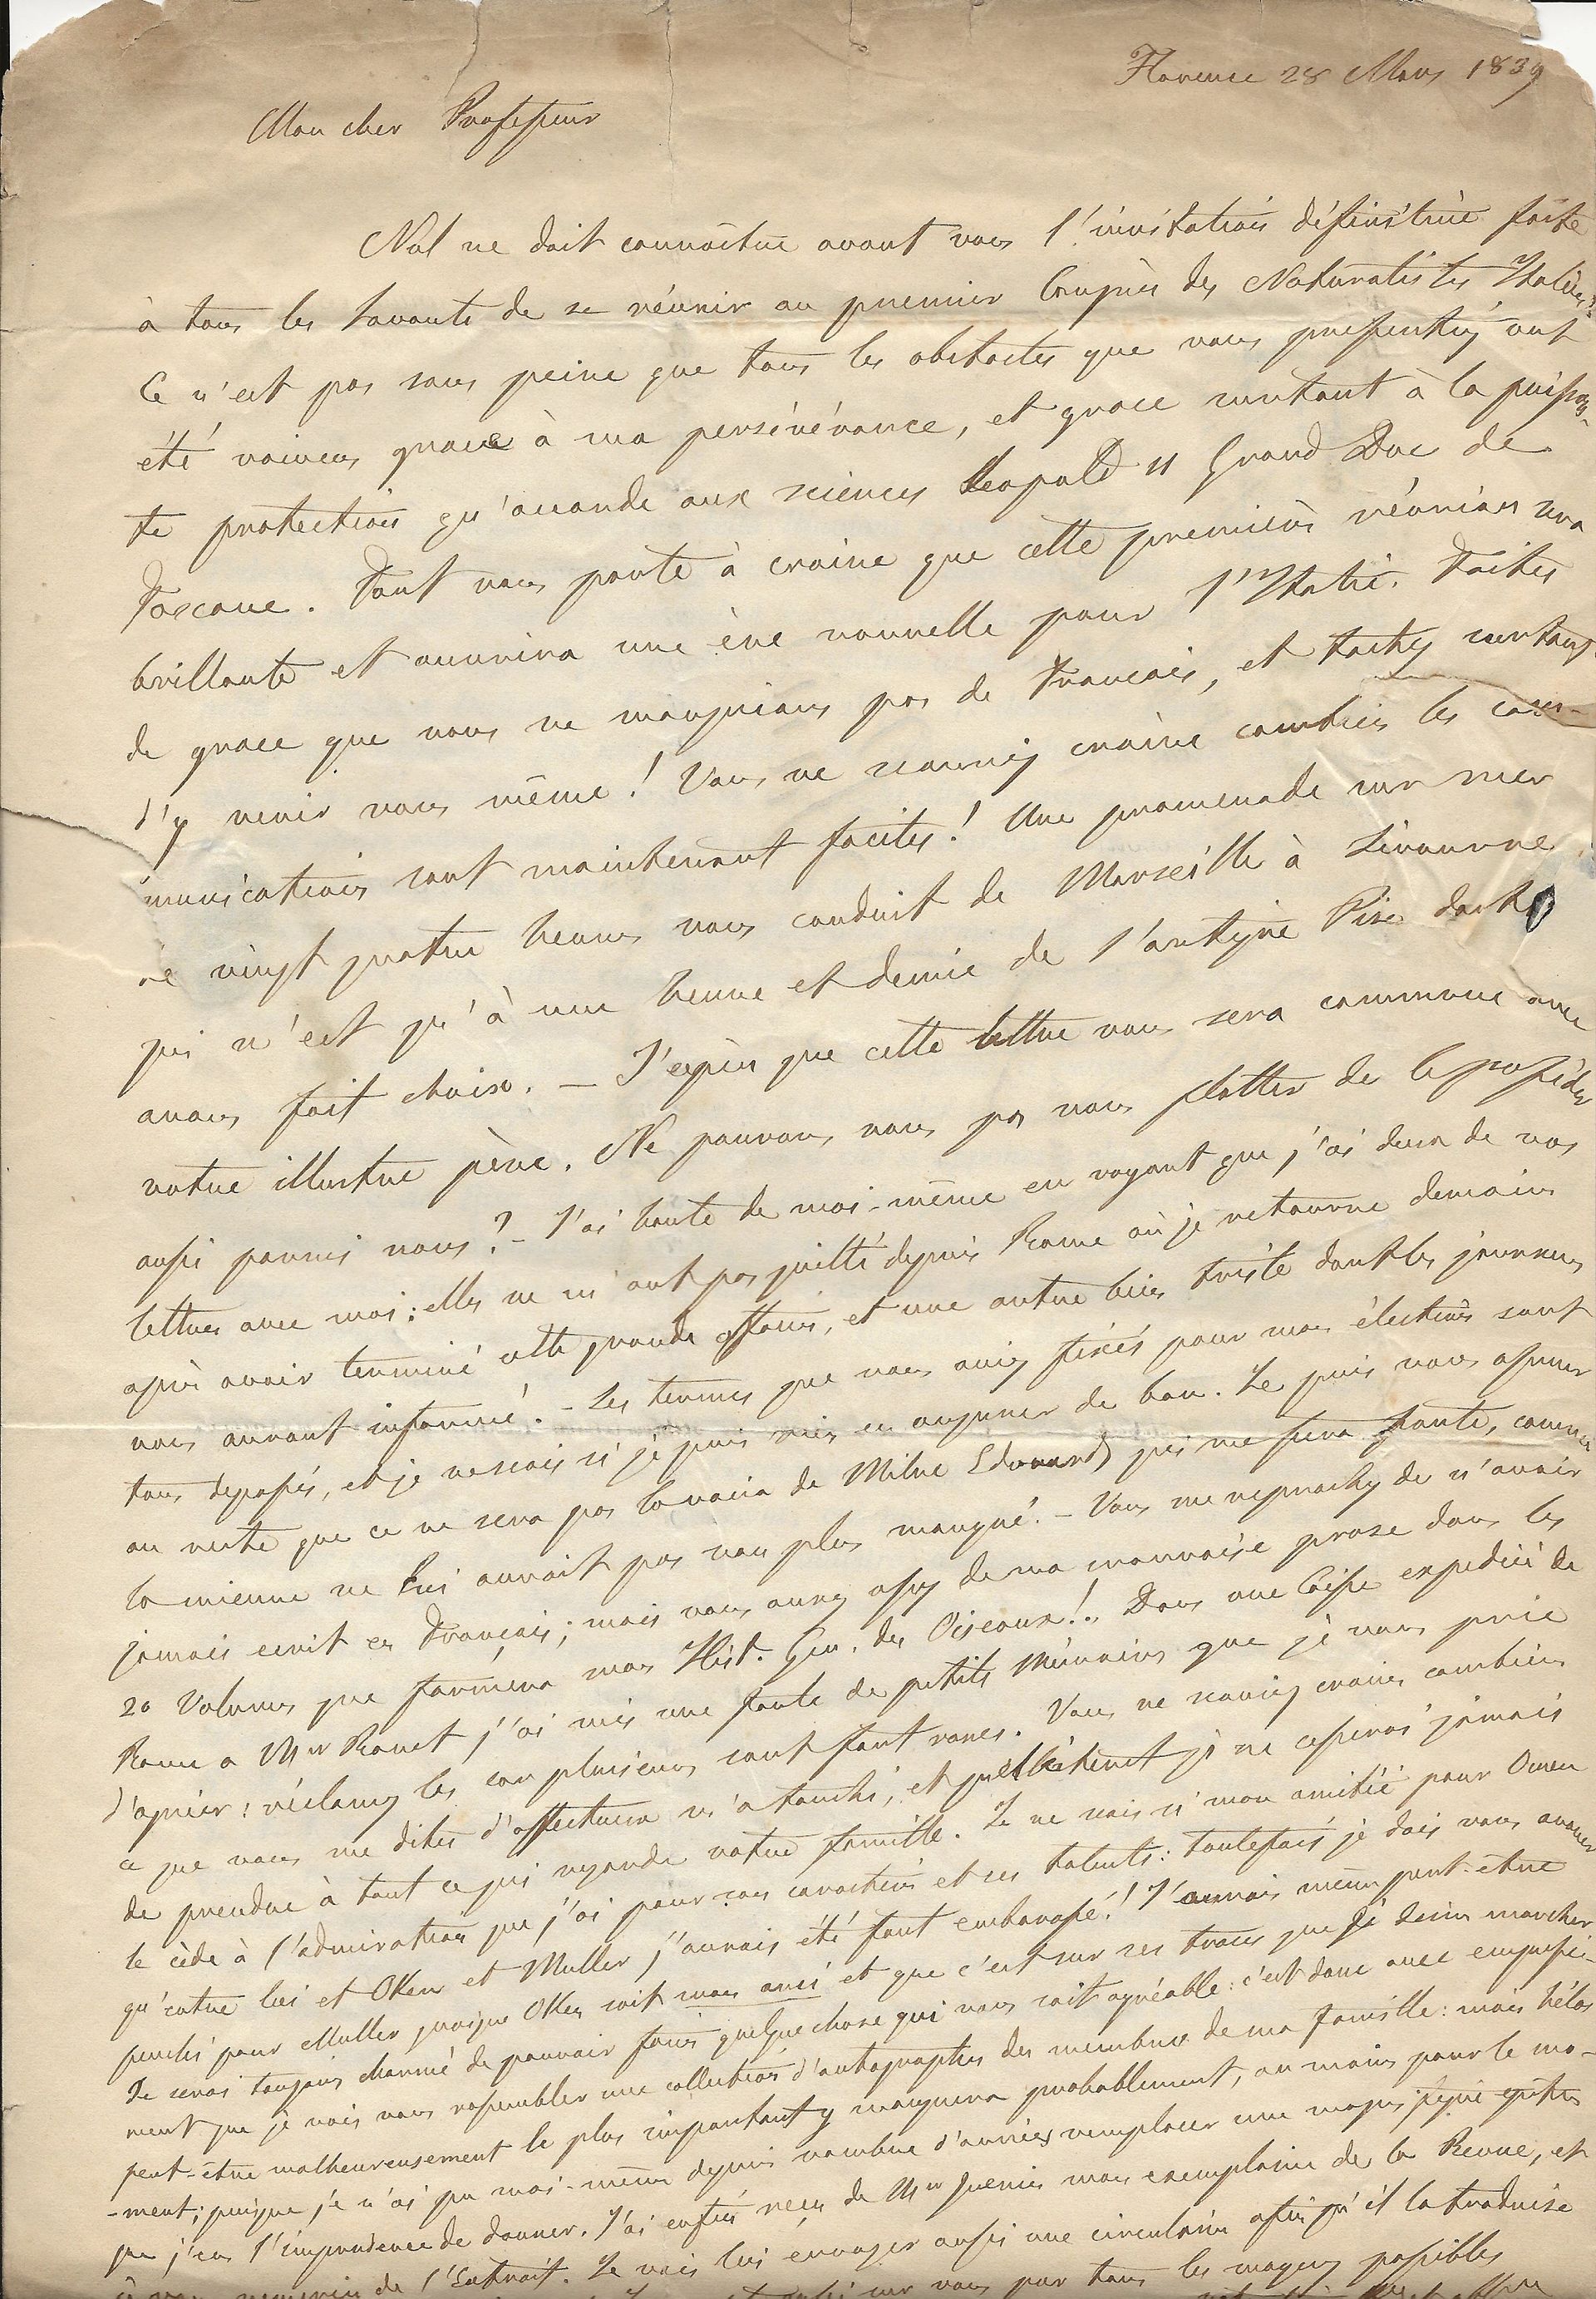 Florence 28 Mars 1839
Mon cher Professeur
Nul ne doit connoitre avant vous l'invitation définitive faite
à tous les Savants de se réunir au premier Congrès des Naturalistes Italiens
Ce n'est pas sans peine que tous les obstacles que nous presentés ont
été vaincus grace à ma persévérance, et grace surtout à la puissan-
te protection qu'accorde aux sciences Leopold II Grand Duc de
Toscane. Tout nous porte à croire que cette première réunion sera
brillante et ouvrira une ère nouvelle pour l'Italie. Faites
de grace que nous ne manquions pas de Francais, et tachez surtout
d'y venir vous même! Vous ne scauriez croire combien les com-
munications sont maintenant faciles! Une promenade sur mer
de vingt quatre heures vous conduit de Marseille à Livourne
qui n'est qu'à une heure et demie de l'antique Pise dont
avons fait choix. — J'espère que cette lettre vous sera commune avec
votre illustre père. Ne pouvons nous pas nous flatter de le posséder
aussi parmis nous? - J'ai honte de moi-même en voyant que j'ai deux de vos
lettres avec moi: elles ne m'ont pas quitté depuis Rome où je retourne demain
après avoir terminé cette grande affaire, et une autre bien triste dont les journaux
vous auront informé! - Les termes que vous aviez fixés pour mon élection sont
tous depassés, et je ne scais si je puis rien en augurer de bon. Je puis vous assurer
au reste que ce ne sera pas la voix de Milne Edwards qui me fera faute, comme
la mienne ne lui auroit pas non plus manqué. - Vous me reprochez de n'avoir
jamais ecrit en Francais; mais vous aurez assez de ma mauvaise prose dans les
20 Volumes que formera mon Hist. Gen. des Oiseaux! Dans une Caisse expediée de
Rome a Mr Rouet j'ai mis une foule de petits Mémoires que je vous prie
d'agréer: réclamez les car plusieurs sont fort rares. Vous ne scauriez croire combien
ce que vous me dites d'affectueux m'a touché, et quel intéret je ne cesserai jamais
de prendre à tout ce qui regarde votre famille. Je ne scais si mon amitié pour Owen
le cède à l'admiration que j'ai pour son caractère et ses talents: toutefois je dois vous avouer
qu'entre lui et Oken et Muller j'aurais été fort embarassé! J'aurais même peut-être
penché pour Muller quoique Oken soit mon ami et que c'est sur ses traces que je desire marcher
Je serai toujours charmé de pouvoir faire quelque chose qui vous soit agréable: c'est donc avec empresse-
ment que je vais vous rassembler une collection d'autographes des membres de ma famille: mais hélas
peut-être malheureusement le plus important y manquera probablement, au moins pour le mo-
-ment; puisque je n'ai pu moi-même depuis nombre d'années remplacer une
que j'eus l'imprudence de donner. J'ai enfin reçu de Mr Guerin mon exemplaire de la Revue, et
de l'Extrait. Je vais lui envoyer aussi une circulaire afin qu'il la traduise
sur vous par tous les moyens possibles